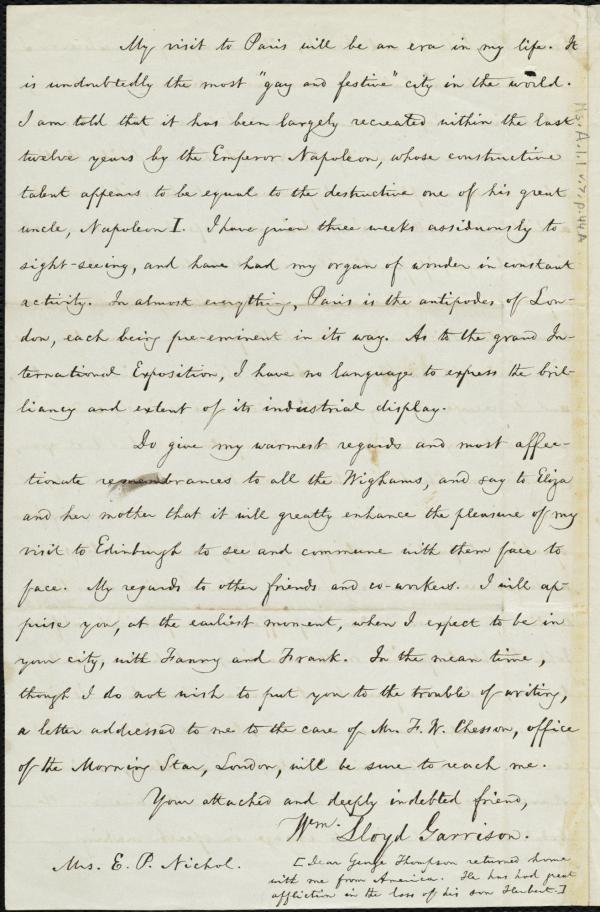 My visit to Paris will be an era in my life. It
is undoubtedly the most "gay and festive" city in the world.
I am told that it has been largely recreated within the last
twelve years by the Emperor Napoleon, whose constructive
talent appears to be equal to the destructive one of his great
uncle, Napoleon I. I have given three weeks assiduously to
sight-seeing, and have had my organ of wonder in constant
activity. In almost everything, Paris is the antipodes of Lon-
don, each being pre-eminent in its way. As to the grand In-
ternational Exposition, I have no language to express the bril-
liancy and extent of its industrial display.
Do give my warmest regards and most affec-
tionate remembrances to all the Wighams, and say to Eliza
and her mother that it will greatly enhance the pleasure of my
visit to Edinburgh to see and commune with them face to
face. My regards to other friends and co-workers. I will ap-
prise you, at the earliest moment, when I expect to be in
your city, with Fanny and Frank. In the mean time,
though I do not wish to put you to the trouble of writing,
a letter addressed to me to the care of Mr. F. W. Chesson, office
of the Morning Star, London, will be sure to reach me.
Your attached and deeply indebted friend,
Wm. Lloyd Garrison.
Mrs. E. P. Nichol.
[Dear George Thompson returned home
with me from America. He has had great
affliction in the loss of his son Herbert.]
Ms. A.1.1 v.7, p.44A